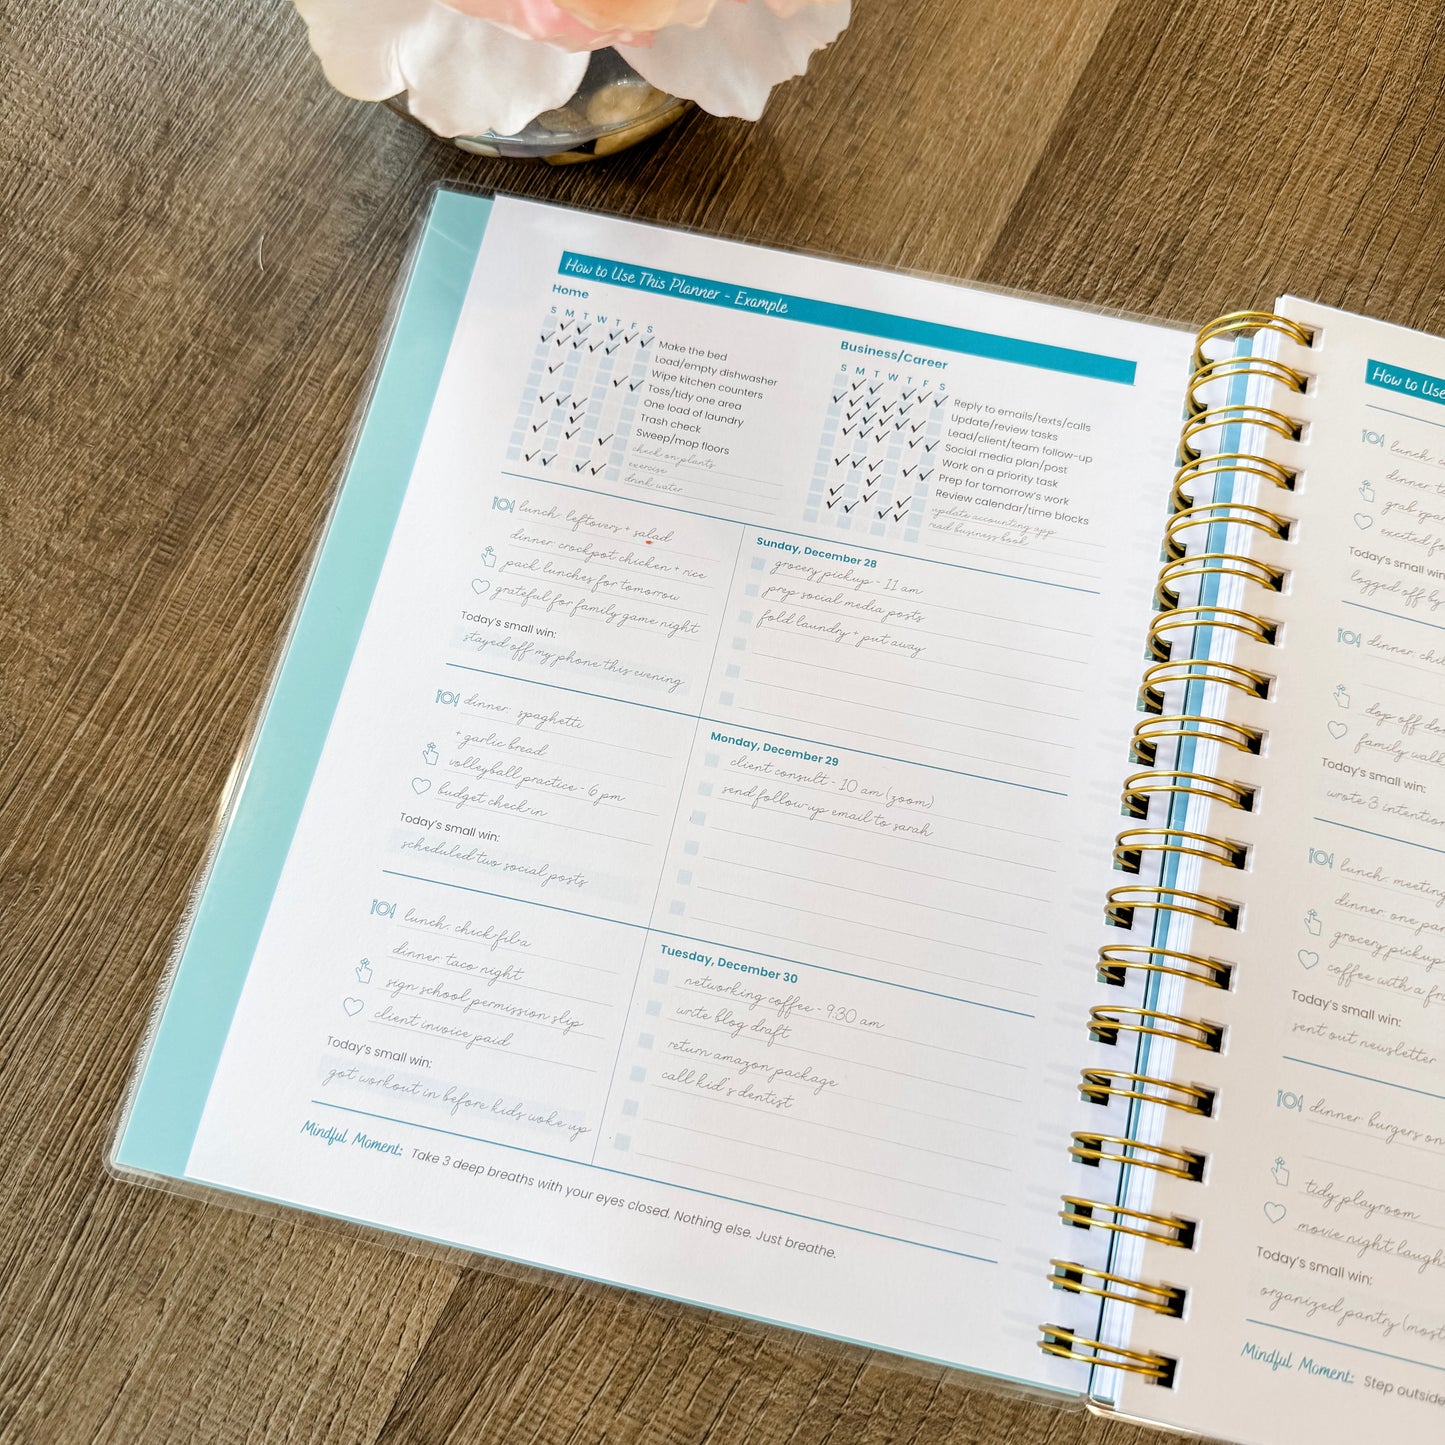 How to Use This Planner - Example
Home
S M T W T F S
Make the bed
Load/empty dishwasher
Wipe kitchen counters
Toss/tidy one area
One load of laundry
Trash check
Sweep/mop floors
check on plants
exercise
drink water
Business/Career
S M T W T F S
Reply to emails/texts/calls
Update/review tasks
Lead/client/team follow-up
Social media plan/post
Work on a priority task
Prep for tomorrow's work
Review calendar/time blocks
update accounting app
read business book
lunch: leftovers + salad
dinner: crockpot chicken + rice
pack lunches for tomorrow
grateful for family game night
Today's small win:
stayed off my phone this evening
Sunday, December 28
grocery pickup - 11 am
prep social media posts
fold laundry + put away
dinner: spaghetti
+ garlic bread
volleyball practice - 6 pm
budget check-in
Today's small win:
scheduled two social posts
Monday, December 29
client consult - 10 am (zoom)
send follow-up email to sarah
lunch: chick fil a
dinner: taco night
sign school permission slip
client invoice paid
Today's small win:
got workout in before kids woke up
Tuesday, December 30
networking coffee - 9:30 am
write blog draft
return amazon package
call kid's dentist
Mindful Moment: Take 3 deep breaths with your eyes closed. Nothing else. Just breathe.
How to Use
lunch:
dinner
grab
excited
Today's small win:
logged off by
dinner:
drop off
family walk
Today's small win:
wrote 3
lunch: meeting
dinner: one
grocery pickup
coffee with a
Today's small win:
sent out newsletter
dinner: burgers on
tidy playroom
movie night
Today's small win:
organized pantry
Mindful Moment: Step outside